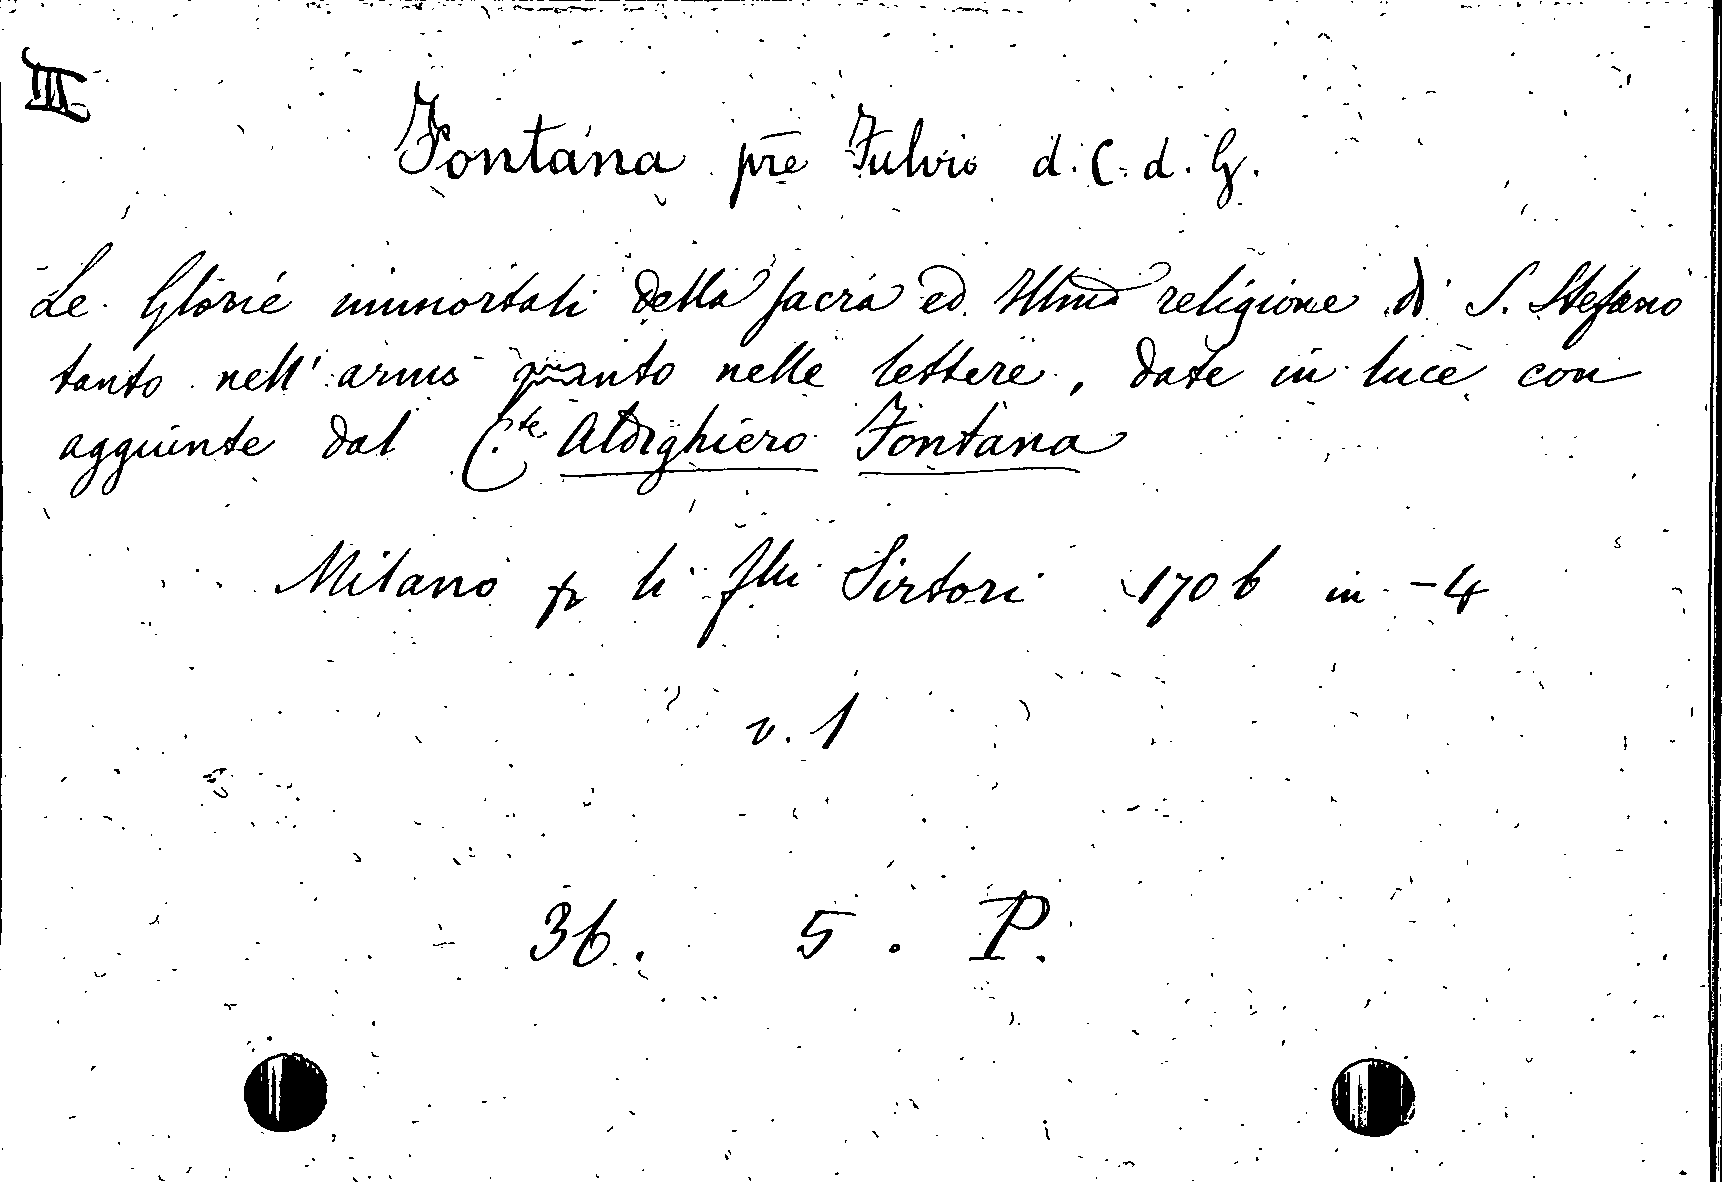 III
Fontana pre Fulvio d. C. d. G.
Le Glorie immortali della sacra ed Illma religione di S. Stefano
tanto nell' armi quanto nelle lettere, date in luce con
aggiunte dal C.te Aldighiero Fontana
Milano p li flli Sirtori 1706 in-4
v. 1
36. 5. P.